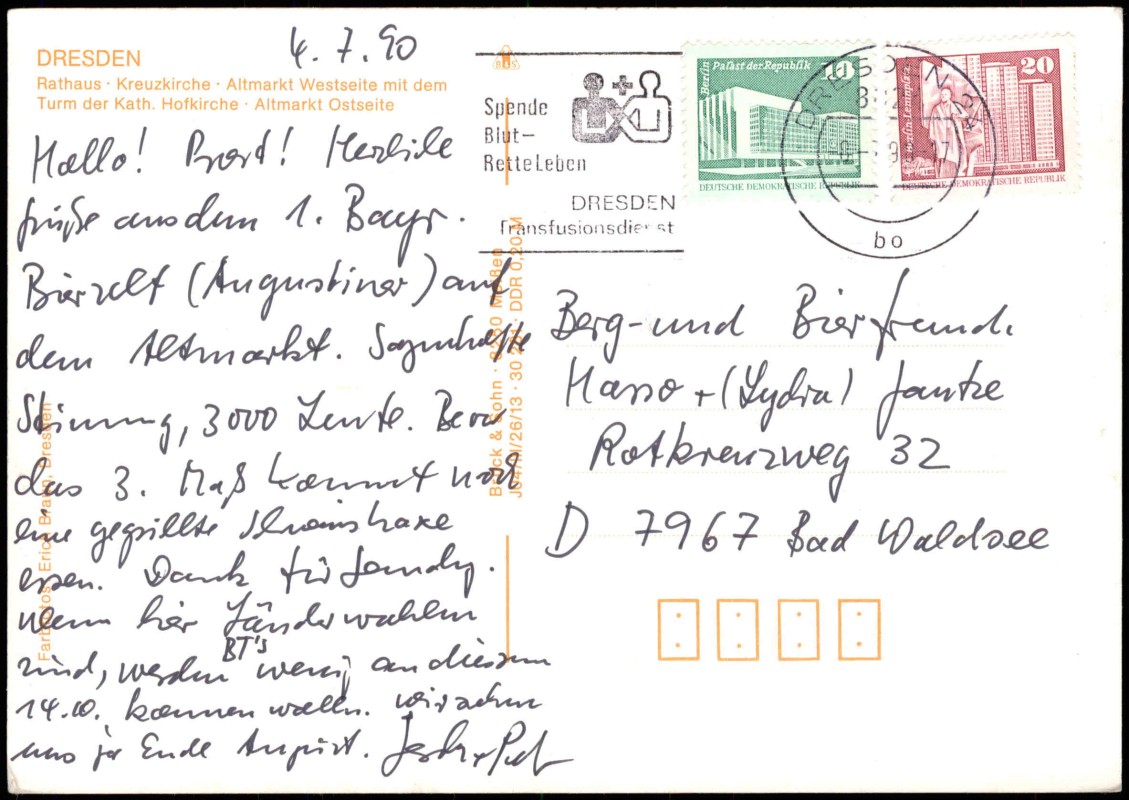 4.7.90
DRESDEN
Rathaus · Kreuzkirche · Altmarkt Westseite mit dem
Turm der Kath. Hofkirche · Altmarkt Ostseite
Hallo!
grüße aus dem 1. Bayr.
Bierzelt (Augustiner) auf
dem Altmarkt. Sagenhafte
Stimmung, 3000 Leute. Bevor
das 3. Maß kommt noch
eine gegrillte Schweinshaxe
essen. Dank für Sendg.
Wenn hier Länderwahlen
sind, werden BT's wenig an diesem
14.10. kommen wollen. Wir sehen
uns ja Ende August.
BOS
Spende
Blut-
Rette Leben
DRESDEN
Transfusionsdienst
Berlin Palast der Republik 10
DEUTSCHE DEMOKRATISCHE REPUBLIK
Berlin-Leninplatz 20
DEUTSCHE DEMOKRATISCHE REPUBLIK
DRESDEN
bo
Berg- und Bierfreunde
Hasso + (Lydia) Jantke
Rotkreuzweg 32
D 7967 Bad Waldsee
Farbfotos: Erich Braun, Dresden
DDR 0,20 M